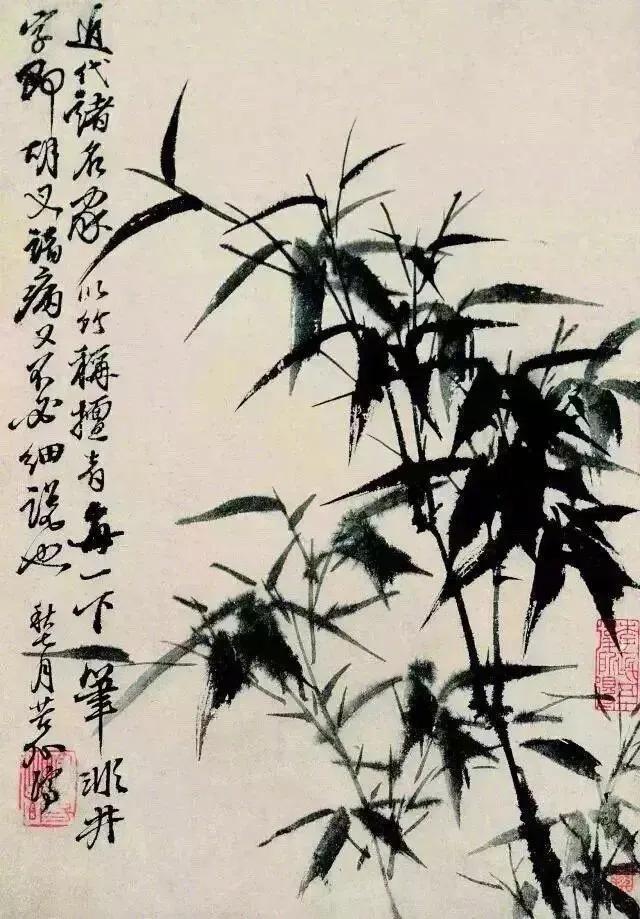 近代諸名家以竹稱擅者每一下筆非井
字即胡叉諸病又不必細說也
秋七月苦瓜濟